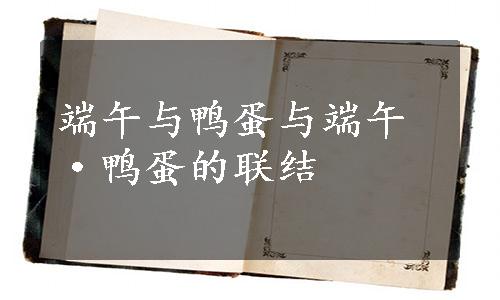 端午与鸭蛋与端午
·鸭蛋的联结